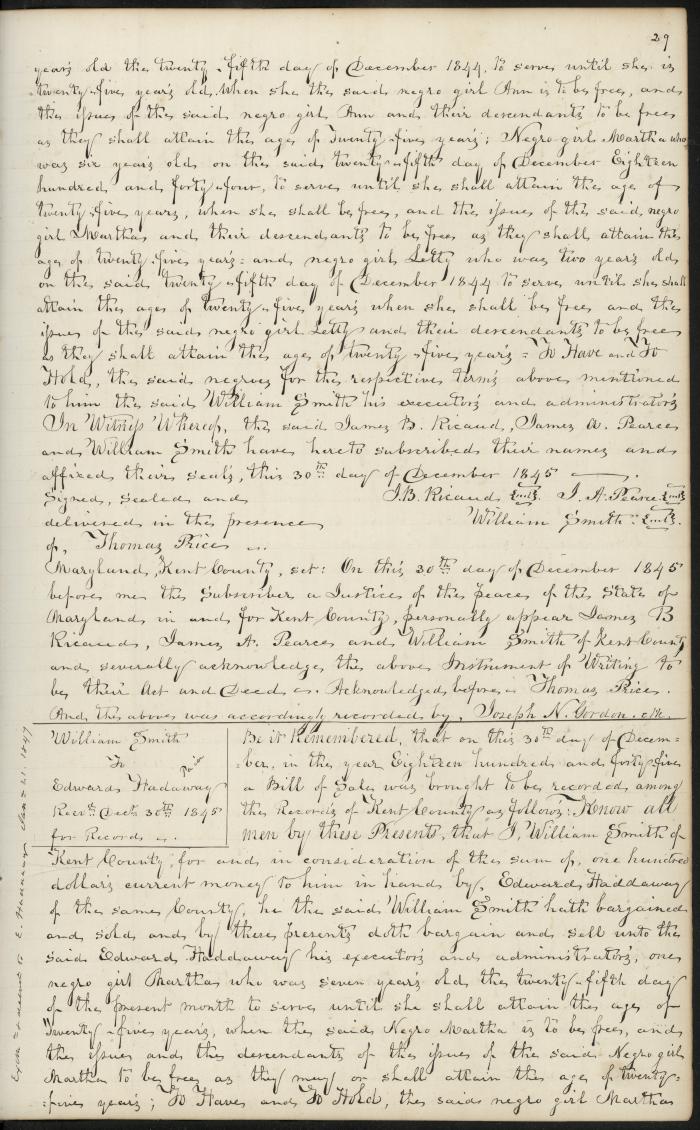 29
years old the twenty-fifth day of December 1844, to serve until she is
twenty-five years old, when she the said negro girl Ann is to be free, and
the issue of the said negro girl Ann and their descendants to be free
as they shall attain the age of Twenty-five years; Negro girl Martha who
was six years old on the said twenty-fifth day of December Eighteen
hundred and forty-four, to serve until she shall attain the age of
twenty-five years, when she shall be free, and the issue of the said negro
girl Martha and their descendants to be free as they shall attain the
age of twenty-five years: and negro girl Letty who was two years old
on the said twenty-fifth day of December 1844 to serve until she shall
attain the age of twenty-five years when she shall be free and the
issue of the said negro girl Letty and their descendants to be free
as they shall attain the age of twenty-five years = To Have and To
Hold, the said negroes for the respective terms above mentioned
to him the said William Smith his executors and administrators
In Witness Whereof, the said James B. Ricaud, James A. Pearce
and William Smith have hereto subscribed their names and
affixed their seals, this 30th day of December 1845
Signed, sealed and J.B. Ricaud {seal}. J. A. Pearce {seal}
delivered in the presence William Smith {seal}.
of, Thomas Price
Maryland, Kent County, set: On this 30th day of December 1845
before me the Subscriber a Justice of the peace of the State of
Maryland in and for Kent County, personally appear James B
Ricaud, James A. Pearce and William Smith of Kent County
and severally acknowledge the above Instrument of Writing to
be their Act and Deed. Acknowledged before Thomas Price.
And the above was accordingly recorded by, Joseph N. Gordon. clk.
William Smith
To
Edward Hadaway paid
Recd. Decr. 30th 1845
for Record
Be it Remembered, that on this 30th day of Decem=
=ber, in the year Eighteen hundred and forty-five
a Bill of Sale was brought to be recorded among
the Records of Kent County as follows: Know all
men by these Presents, that I, William Smith of
Kent County, for and in consideration of the sum of, one hundred
dollars current money to him in hand by, Edward Haddaway
of the same County, he the said William Smith hath bargained
and sold and by these presents doth bargain and sell unto the
said Edward Haddaway his executors and administrators, one
negro girl Martha who was seven years old the twenty-fifth day
of the present month to serve until she shall attain the age of
Twenty-five years, when the said Negro Martha is to be free, and
the issue and the descendants of the issue of the said Negro girl
Martha to be free as they may or shall attain the age of twenty=
=five years; To Have and To Hold, the said negro girl Martha